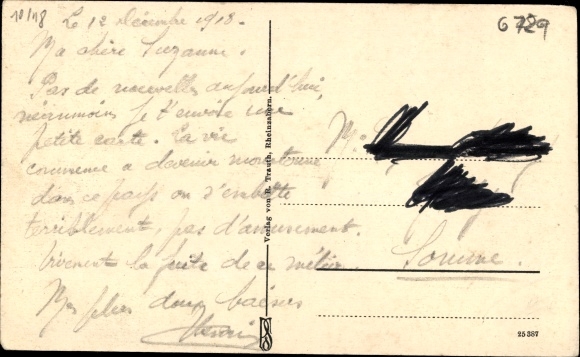 10/18
Le 12 Décembre 1918.
6729
Ma chère Suzanne.
Pas de nouvelles aujourd'hui,
néanmoins je t'envoie une
petite carte. La vie
commence a devenir monotone
dans ce pays on s'embette
terriblement, pas d'amusement.
Vivement la fuite de ce métier.
Mes plus doux baisers
Henri
M.
Somme.
Verlag von R. Trauth, Rheinzabern.
25 387